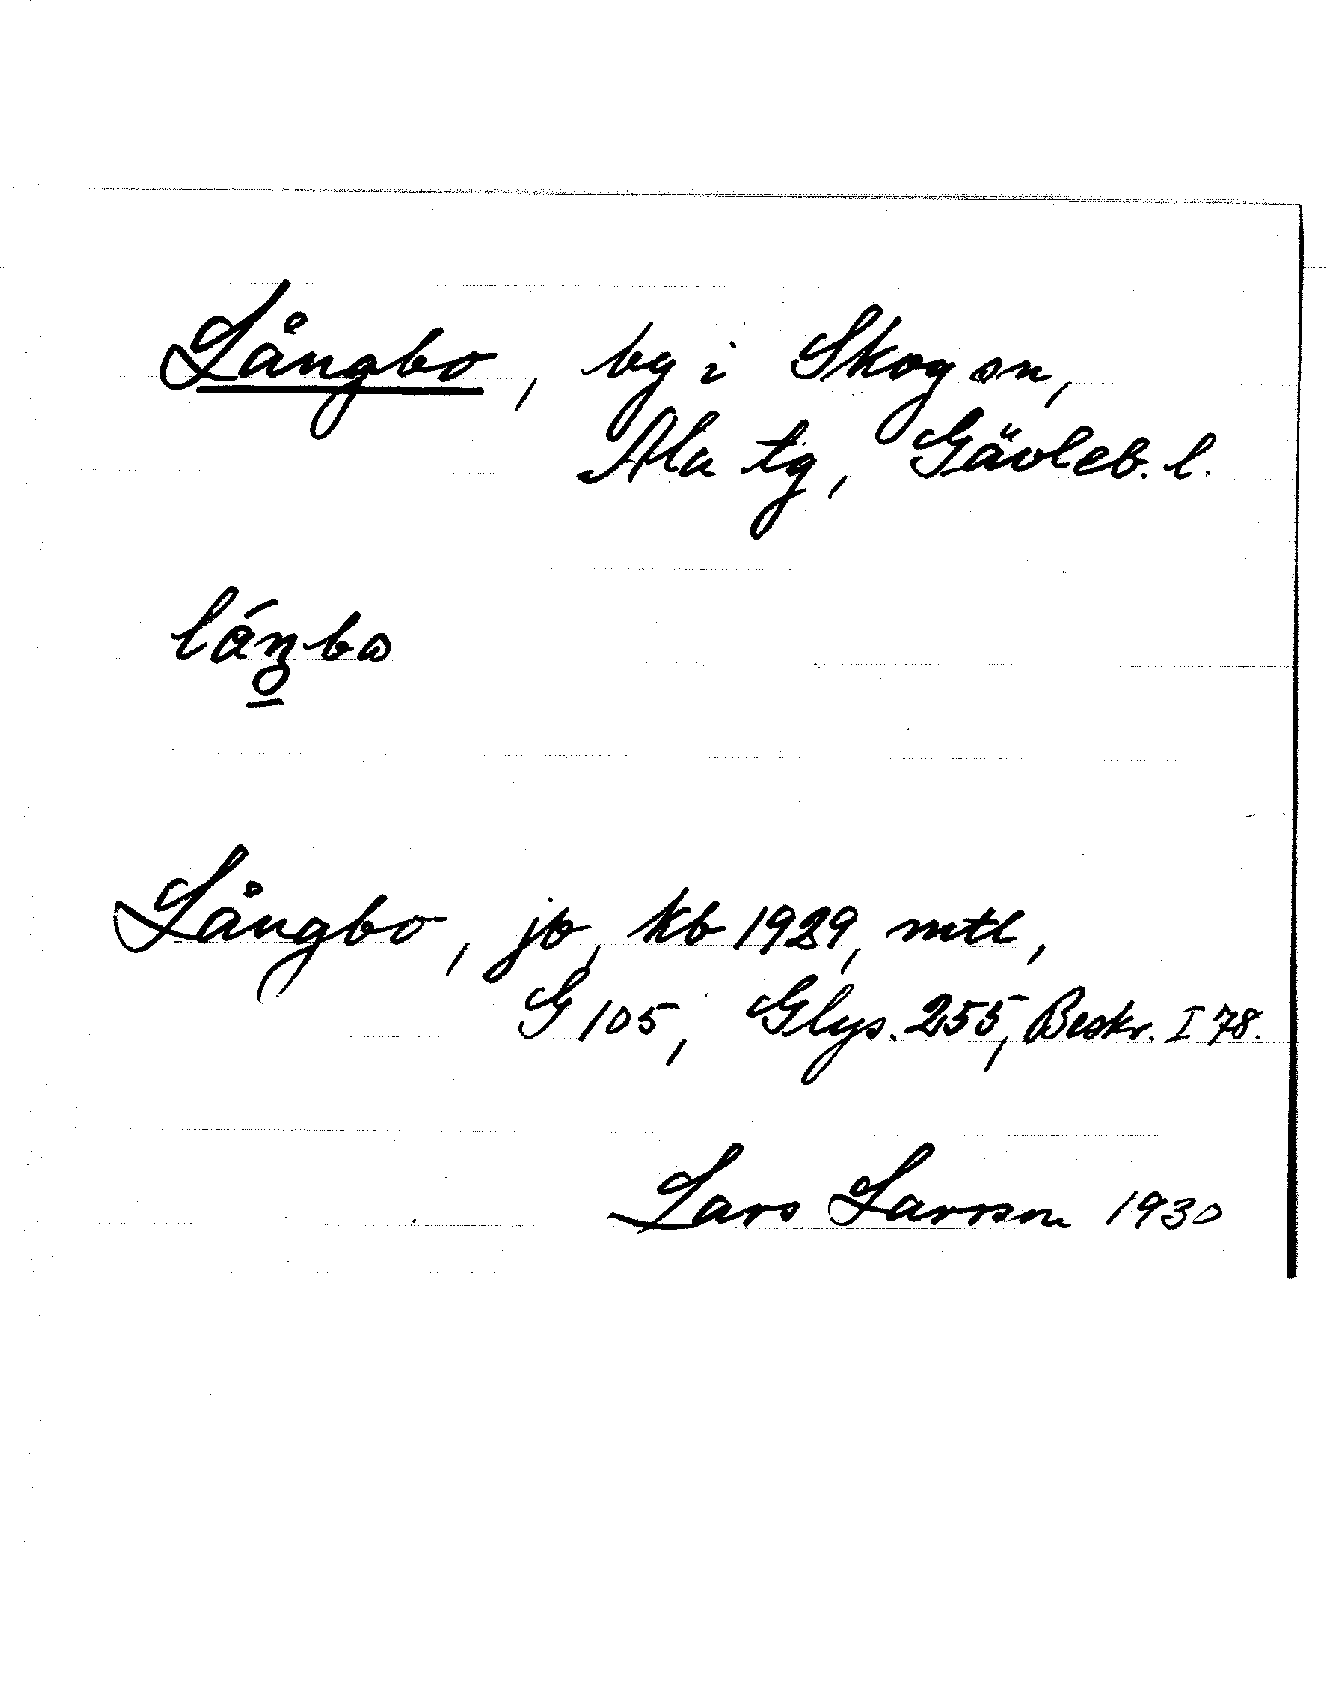 Långbo, by i Skog sn,
Ala tg, Gävleb. l.
Långbo, jb, kb 1929, mtl,
G 105, Glys. 255, Beskr. I 78.
Lars Larsson 1930